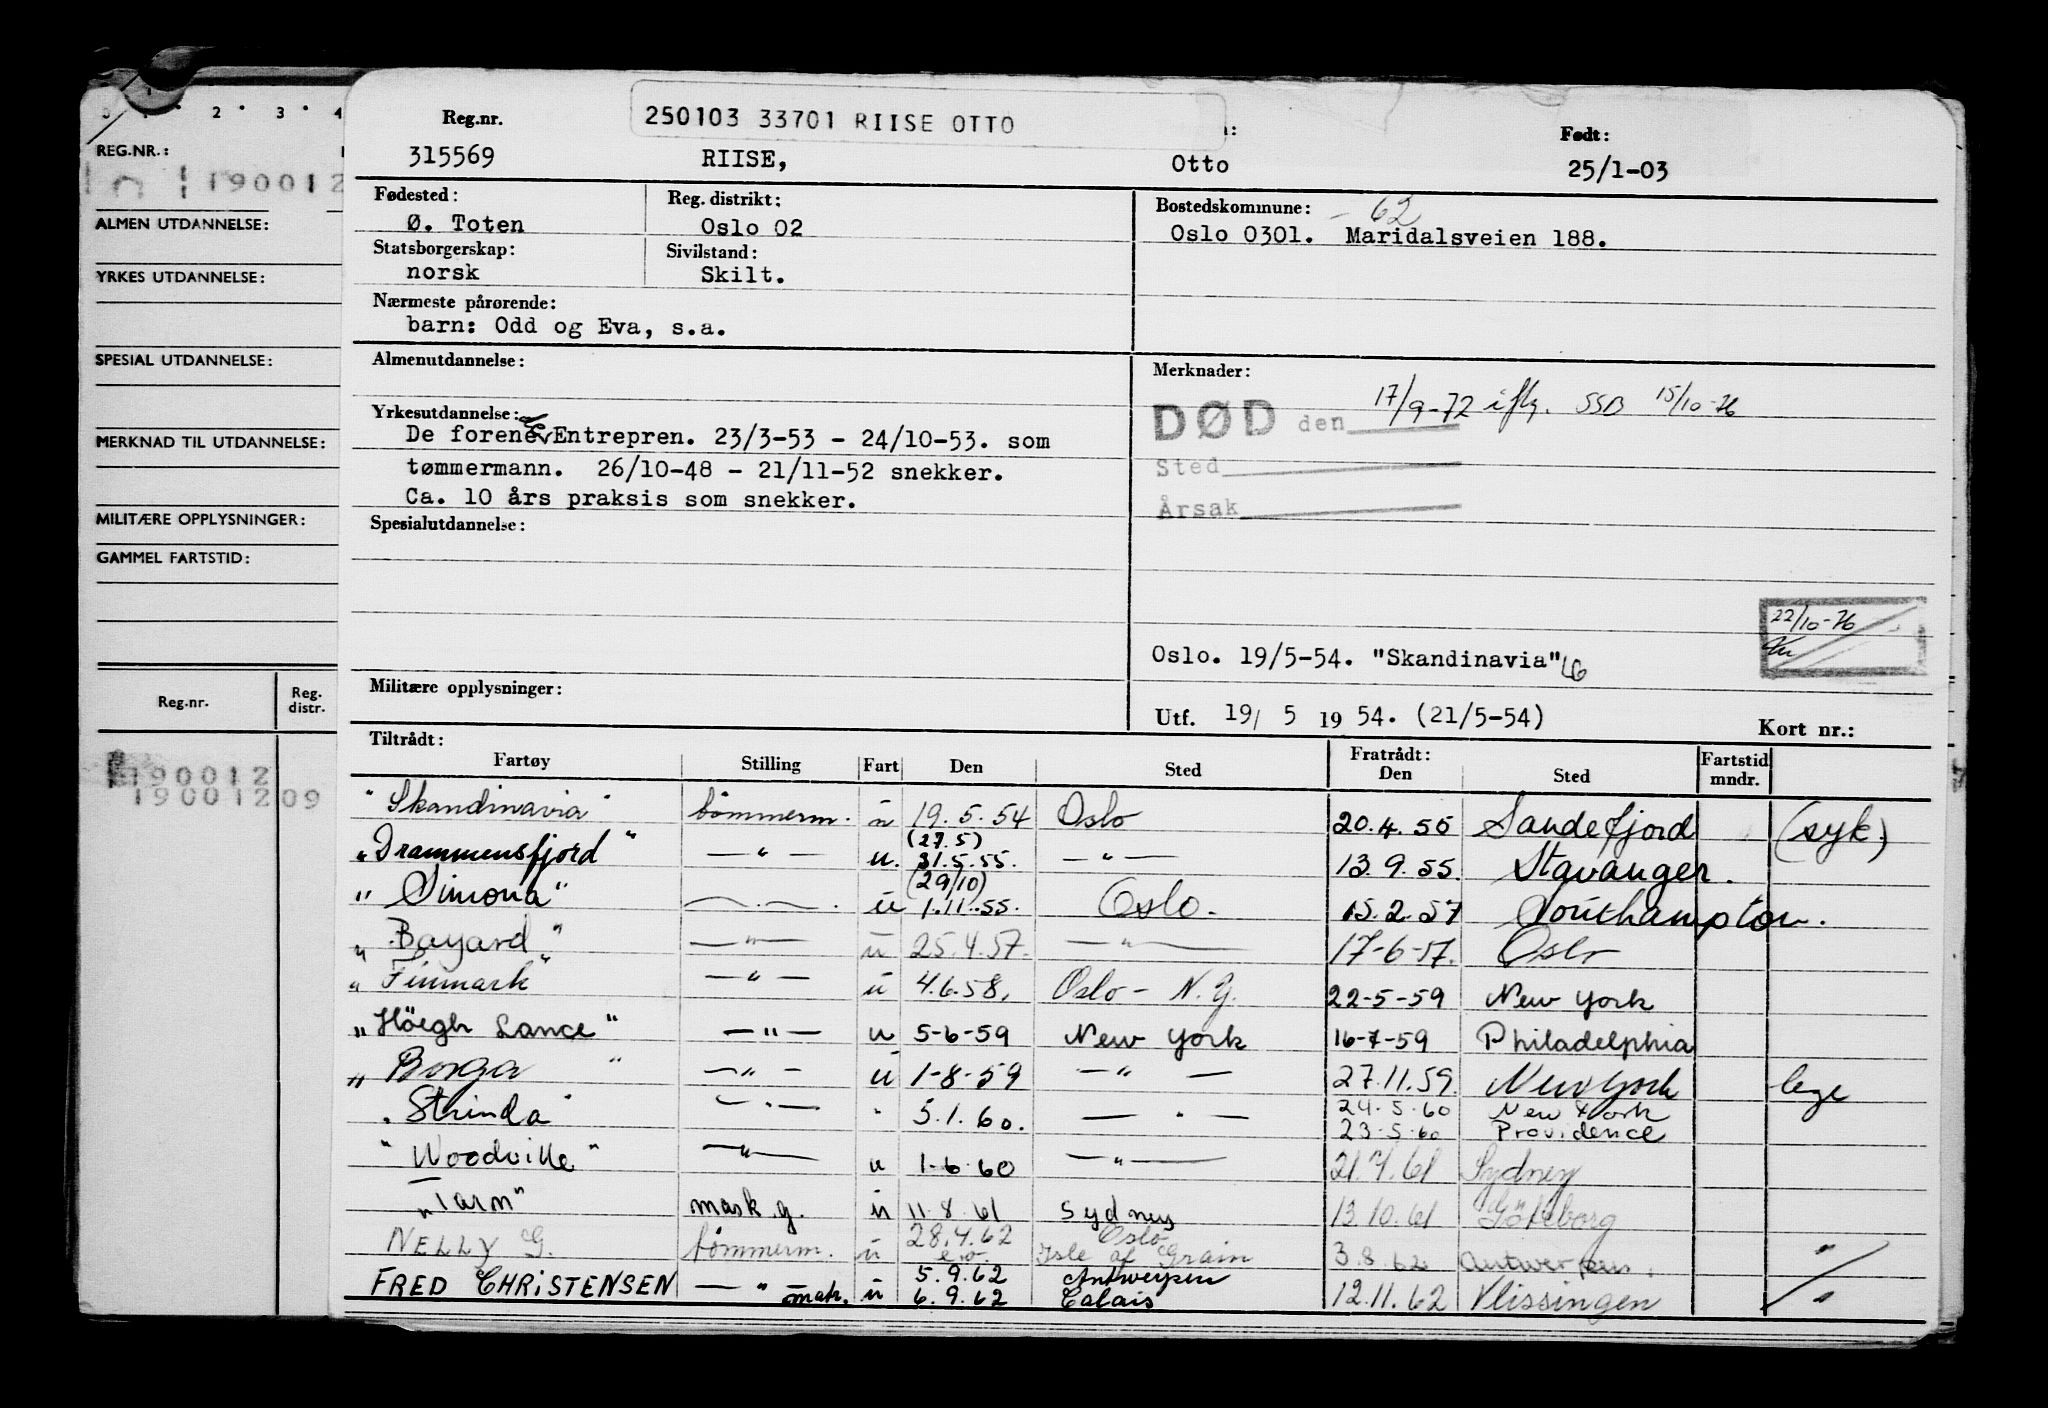 3 1 2 3 4
REG.NR.:
190012
ALMEN UTDANNELSE:
YRKES UTDANNELSE:
SPESIAL UTDANNELSE:
MERKNAD TIL UTDANNELSE:
MILITÆRE OPPLYSNINGER:
GAMMEL FARTSTID:
Reg.nr. Reg. distr.
190012
19001209
250103 33701 RIISE OTTO
Reg.nr. Født:
315569 RIISE, Otto 25/1-03
Fødested: Reg. distrikt: Bostedskommune: - 62
Ø. Toten Oslo 02 Oslo 0301. Maridalsveien 188.
Statsborgerskap: Sivilstand:
norsk Skilt.
Nærmeste pårørende:
barn: Odd og Eva, s.a.
Almenutdannelse: Merknader:
DØD den 17/9-72 iflg. SSB 15/10-76
Sted
Årsak
Yrkesutdannelse:
De forene Entrepren. 23/3-53 - 24/10-53. som
tømmermann. 26/10-48 - 21/11-52 snekker.
Ca. 10 års praksis som snekker.
Spesialutdannelse:
22/10-76
Oslo. 19/5-54. "Skandinavia"
Militære opplysninger:
Utf. 19/ 5 19 54. (21/5-54) Kort nr.:
Tiltrådt: Fratrådt:
Fartøy Stilling Fart Den Sted Den Sted Fartstid mndr.
"Skandinavia" tømmerm. u 19.5.54 Oslo 20.4.55 Sandefjord (syk.)
"Drammensfjord" — " — u. (27.5) 31.5.55. — " — 13.9.55. Stavanger.
"Simona" — . — . u (29/10) 1.11.55. Oslo. 15.2.57 Southampton.
"Bayard" — " — u 25.4.57. — " — 17-6-57. Oslo
"Finmark" — " — u 4.6.58. Oslo - N.Y. 22-5-59 New York
"Höegh Lance" — " — u 5-6-59 New York 16-7-59 Philadelphia
"Borga" — " — u 1-8-59 — " — 27.11.59. New York lege
"Strinda" — " — " 5.1.60. — " — 24.5.60 New York
23.5.60 Providence
"Woodville" — " — u 1-6-60 — " — 21.7.61 Sydney
"Tarn" mask g. u 11.8.61 Sydney 13.10.61 Göteborg
NELLY G. tømmerm. u 28.4.62 Oslo
Isle of Grain 3.8.62 Antwerpen. "
FRED CHRISTENSEN — " — matr. u 5.9.62 Antwerpen
6.9.62 Calais 12.11.62 Vlissingen "